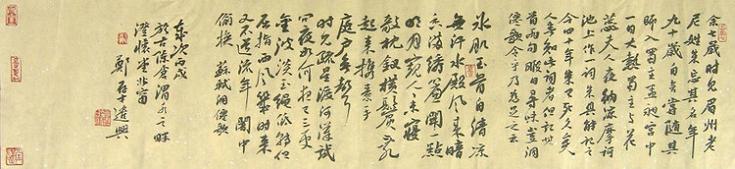 余七歲時見眉州老
尼姓朱忘其名年
九十歲自言嘗隨其
師入蜀主孟昶宮中
一日大熱蜀主與花
蕊夫人夜納涼摩訶
池上作一詞朱具能記之
今四十年朱已死久矣
人無知此詞者但記其
首兩句暇日尋味豈洞
仙歌令乎乃為足之云
冰肌玉骨自清涼
無汗水殿風來暗
香滿繡簾開一點
明月窺人人未寢
欹枕釵橫鬢亂
起來攜素手
庭戶無聲
時見疏星渡河漢試
問夜如何夜已三更
金波淡玉繩低轉但
屈指西風幾時來
又不道流年暗中
偷換 蘇軾洞仙歌
歲次丙戌
於古陳倉渭水之畔
澄懷堂北窗
鄭